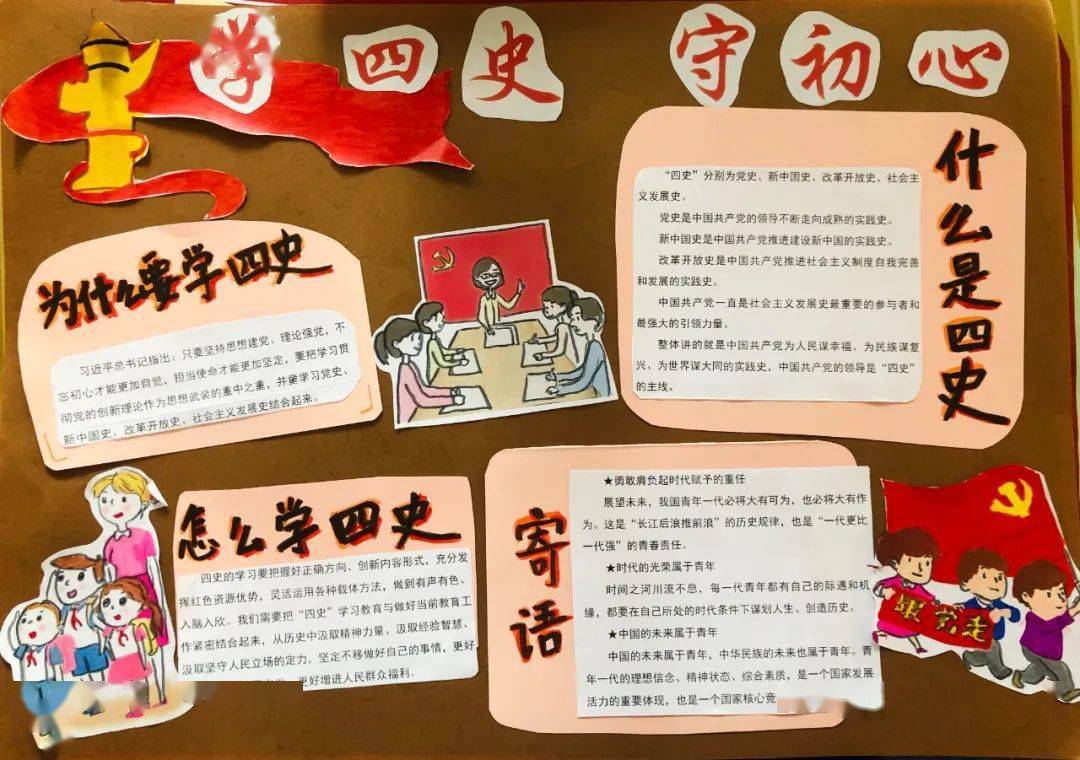 学四史 守初心
什么是四史
“四史”分别为党史、新中国史、改革开放史、社会主
义发展史。
党史是中国共产党的领导不断走向成熟的实践史。
新中国史是中国共产党推进建设新中国的实践史。
改革开放史是中国共产党推进社会主义制度自我完善
和发展的实践史。
中国共产党一直是社会主义发展史最重要的参与者和
最强大的引领力量。
整体讲的就是中国共产党为人民谋幸福、为民族谋复
兴、为世界谋大同的实践史，中国共产党的领导是“四史”
的主线。
为什么要学四史
习近平总书记指出：只要坚持思想建党、理论强党，不
忘初心才能更加自觉，担当使命才能更加坚定，要把学习贯
彻党的创新理论作为思想武装的重中之重，并同学习党史、
新中国史、改革开放史、社会主义发展史结合起来。
怎么学四史
四史的学习要把握好正确方向、创新内容形式，充分发
挥红色资源优势，灵活运用各种载体方法，做到有声有色、
入脑入欣。我们需要把“四史”学习教育与做好当前教育工
作紧密结合起来，从历史中汲取精神力量、汲取经验智慧、
汲取坚守人民立场的定力，坚定不移做好自己的事情，更好
更好增进人民群众福利。
寄语
★勇敢肩负起时代赋予的重任
展望未来，我国青年一代必将大有可为，也必将大有作
为。这是“长江后浪推前浪”的历史规律，也是“一代更比
一代强”的青春责任。
★时代的光荣属于青年
时间之河川流不息，每一代青年都有自己的际遇和机
缘，都要在自己所处的时代条件下谋划人生、创造历史。
★中国的未来属于青年
中国的未来属于青年，中华民族的未来也属于青年。青
年一代的理想信念、精神状态、综合素质，是一个国家发展
活力的重要体现，也是一个国家核心竞
跟党走